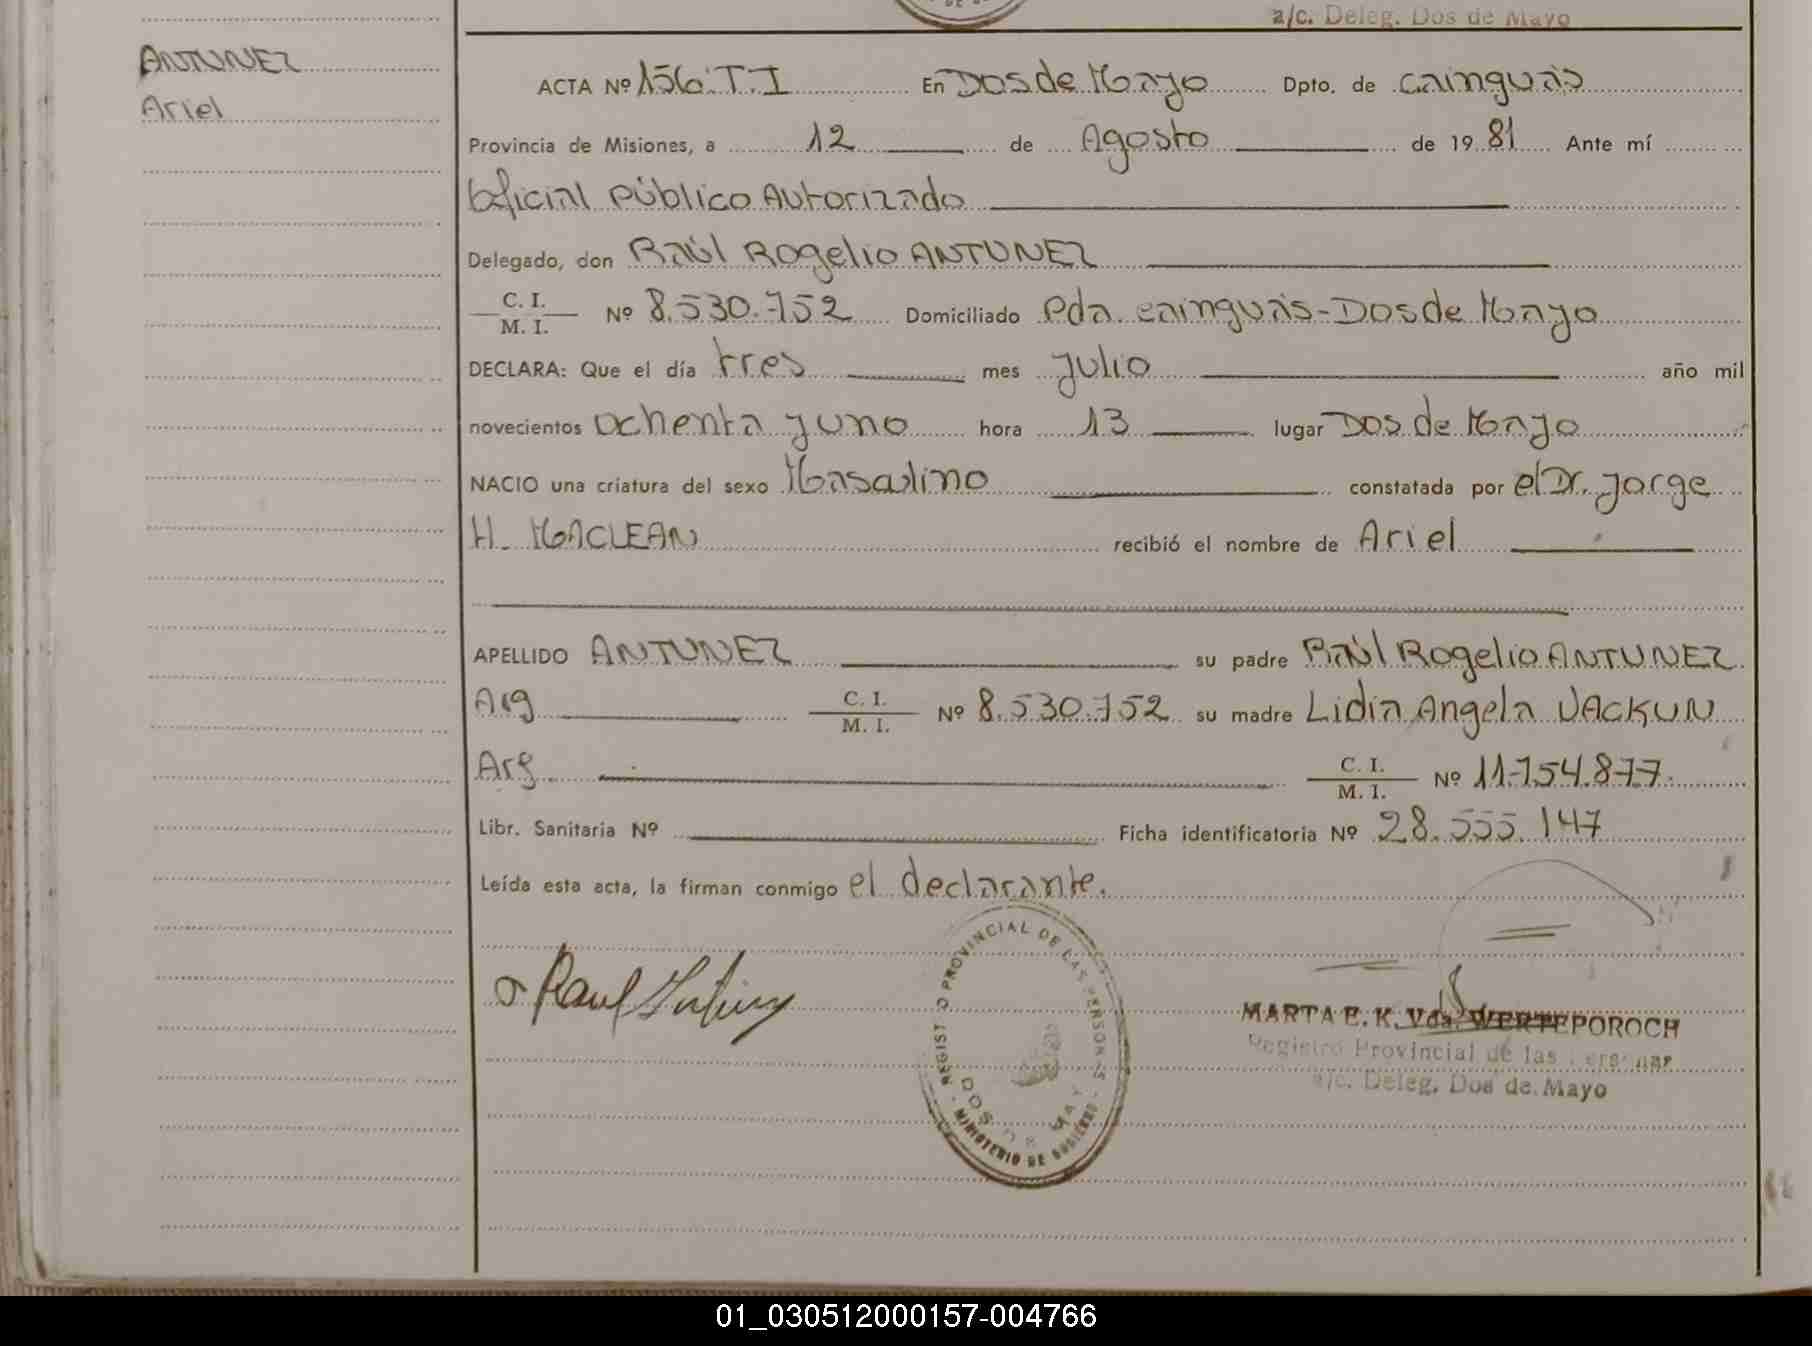 a/c. Deleg. Dos de Mayo
ANTUNEZ
Ariel
ACTA Nº 156. T. I En Dos de Mayo Dpto. de Cainguás
Provincia de Misiones, a 12 de Agosto de 1981 Ante mí
Oficial Público Autorizado
Delegado, don Raúl Rogelio ANTUNEZ
C. I.
M. I. Nº 8.530.752 Domiciliado Pda. Cainguás-Dos de Mayo
DECLARA: Que el día tres mes julio año mil
novecientos ochenta y uno hora 13 lugar Dos de Mayo
NACIO una criatura del sexo Masculino constatada por el Dr. Jorge
H. MACLEAN recibió el nombre de Ariel
APELLIDO ANTUNEZ su padre Raúl Rogelio ANTUNEZ
Arg C. I.
M. I. Nº 8.530.752 su madre Lidia Angela VACKUN
Arg. C. I.
M. I. Nº 11.754.877.
Libr. Sanitaria Nº Ficha identificatoria Nº 28.555.147
Leída esta acta, la firman conmigo el declarante.
REGISTRO PROVINCIAL DE LAS PERSONAS
DOS DE MAYO
MINISTERIO DE GOBIERNO
MARTA E. K. Vda. WERTEPOROCH
Registro Provincial de las Personas
a/c. Deleg. Dos de Mayo
01_030512000157-004766